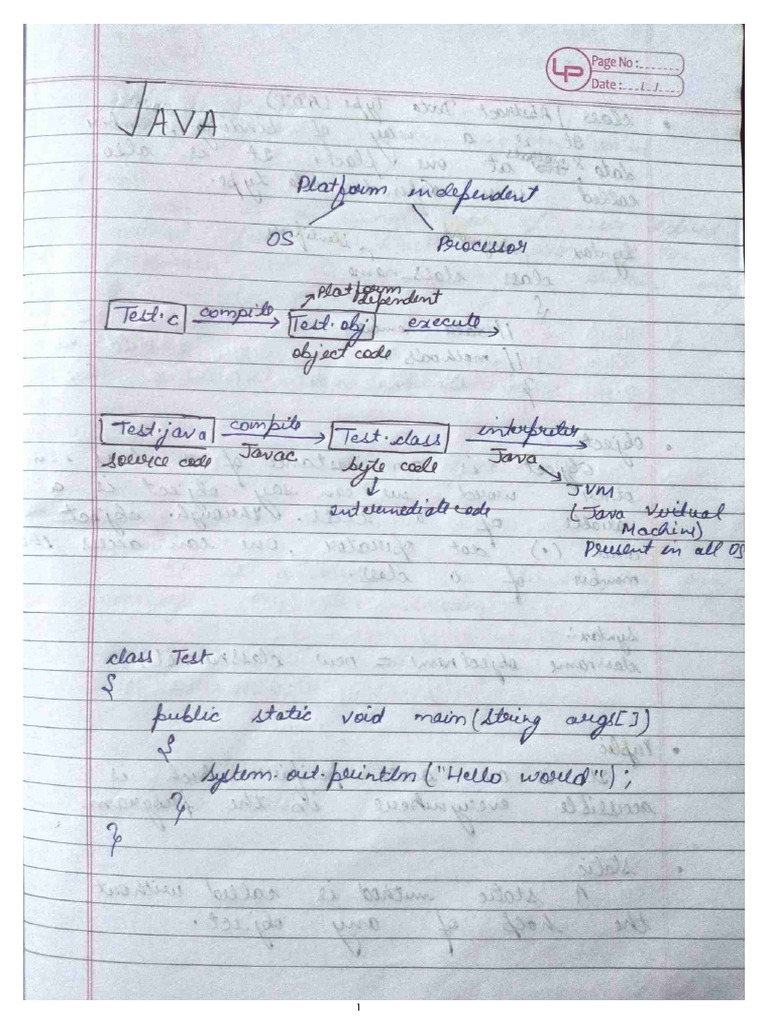 LP
Page No :
Date :
JAVA
Platform independent
OS
Processor
Platform
dependent
Test.c
compile
Test.obj
execute
object code
Test.java
compile
Test.class
interpreter
source code
Javac
byte code
Java
Intermediate code
JVM
(Java Virtual
Machine)
Present in all OS
class Test
{
public static void main(String args[])
{
System.out.println("Hello world");
}
}
1